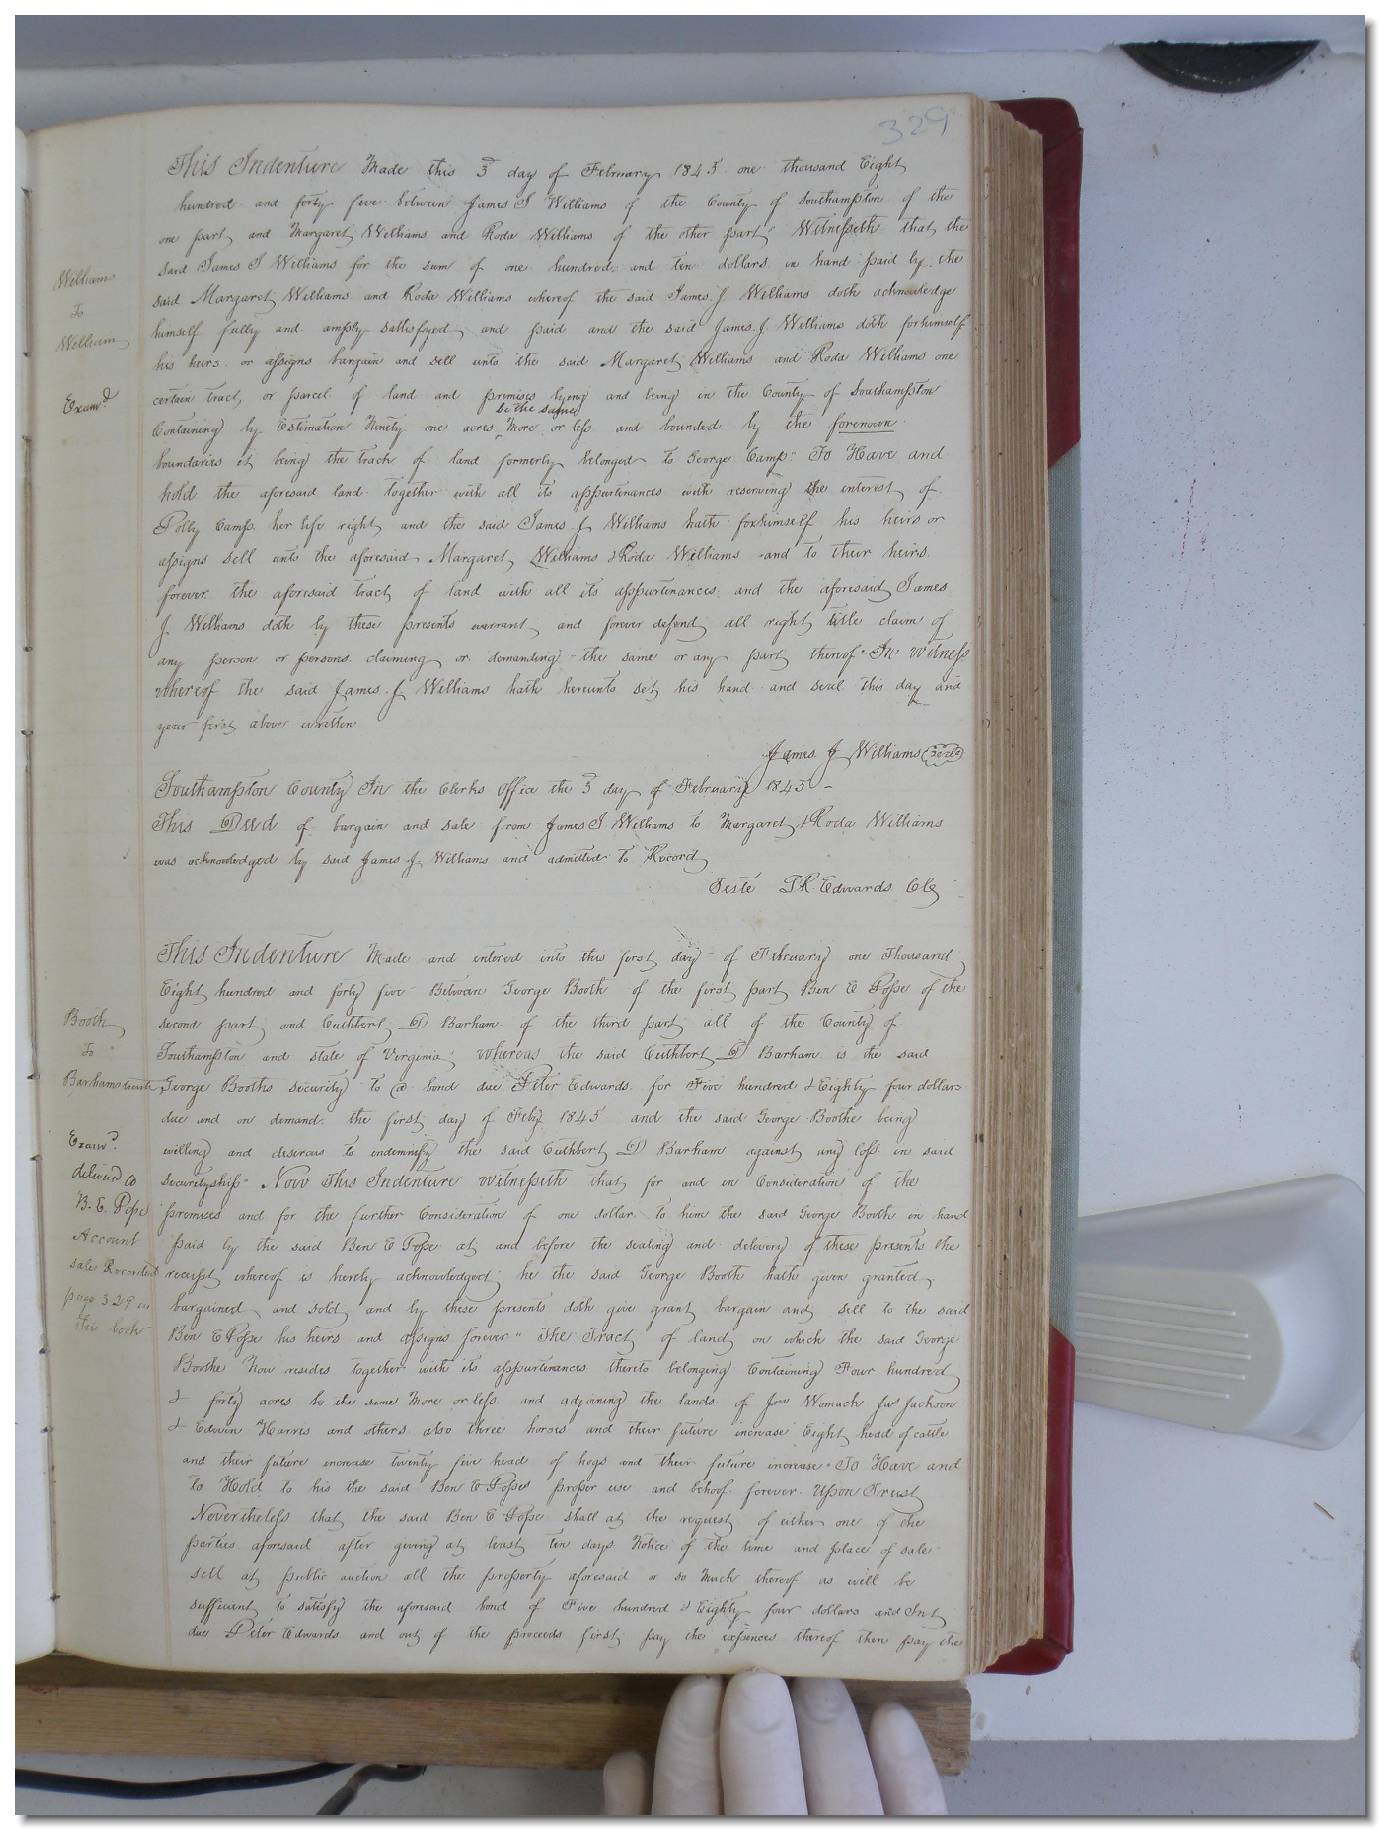 329
This Indenture Made this 3d day of February 1845 one thousand Eight
hundred and forty five between James J Williams of the County of Southampton of the
one part and Margaret Williams and Roda Williams of the other part" Witnesseth that the
said James J Williams for the sum of one hundred and ten dollars in hand paid by the
said Margaret Williams and Roda Williams whereof the said James J. Williams doth acknowledge
himself fully and amply sattisfyed and paid and the said James J. Williams doth forhimself
his heirs or assigns bargain and sell unto the said Margaret Williams and Roda Williams one
certain tract or parcel of land and premises lying and being in the County of Southampton
be the same
Containing by Estimation Ninety one acres More or less and bounded by the forenown
boundaries it being the track of land formerly belonged to George Camp" To Have and
hold the aforesaid land together with all its appurtenances with reserving the interest of
Polly Camps her life right and the said James J Williams hath forhimself his heirs or
assigns sell unto the aforesaid Margaret Williams & Roda Williams and to their heirs
forever the aforesaid tract of land with all its appurtenances and the aforesaid James
J. Williams doth by these presents warrant and forever defend all right title claim of
any person or persons claiming or demanding the same or any part thereof In witness
whereof the said James J Williams hath hereunto set his hand and seal this day and
year first above written
James J Williams Seal
Southampton County In the Clerks Office the 3d day of February 1845
This Deed of bargain and sale from James J Williams to Margaret & Roda Williams
was acknowledged by said James J. Williams and admitted to Record
Teste LR Edwards Clk
William
To
William
Examd
This Indenture Made and entered into this first day of February one Thousand
Eight hundred and forty five Between George Booth of the first part Ben E Pope of the
second part and Cuthbert D Barham of the third part all of the County of
Southampton and state of Virginia" Whereas the said Cuthbert D Barham is the said
George Booths security to a bond due Peter Edwards for Five hundred & Eighty four dollars
due and on demand the first day of Feby 1845 and the said George Boothe being
willing and desirous to indemnify the said Cuthbert D Barham against any loss in said
securityship" Now This Indenture witnesseth that for and in Consideration of the
premises and for the further Consideration of one dollar to him the said George Booth in hand
paid by the said Ben E Pope at and before the sealing and delivery of these presents the
receipt whereof is hereby acknowledged he the said George Booth hath given granted
bargained and sold and by these presents doth give grant bargain and sell to the said
Ben E Pope his heirs and assigns forever" The Tract of land on which the said George
Boothe Now resides together with its appurtenances thereto belonging Containing Four hundred
& forty acres be the same More or less and adjoining the lands of Womack Jackson
& Edwin Harris and others also three horses and their future increase Eight head of cattle
and their future increase twenty five head of hogs and their future increase To Have and
to Hold to his the said Ben E Popes proper use and behoof forever Upon Trust
Nevertheless that the said Ben E Pope shall at the request of either one of the
parties aforsaid after giving at least ten days Notice of the time and place of sale
sell at public auction all the property aforesaid or so Much thereof as will be
sufficient to satisfy the aforesaid bond of Five hundred & Eighty four dollars and Int
due Peter Edwards and out of the proceeds first pay the expences thereof then pay the
Booth
To
Barhams
Examd
delived to
B. E. Pope
Account
sales Recorded
page 329 in
this book